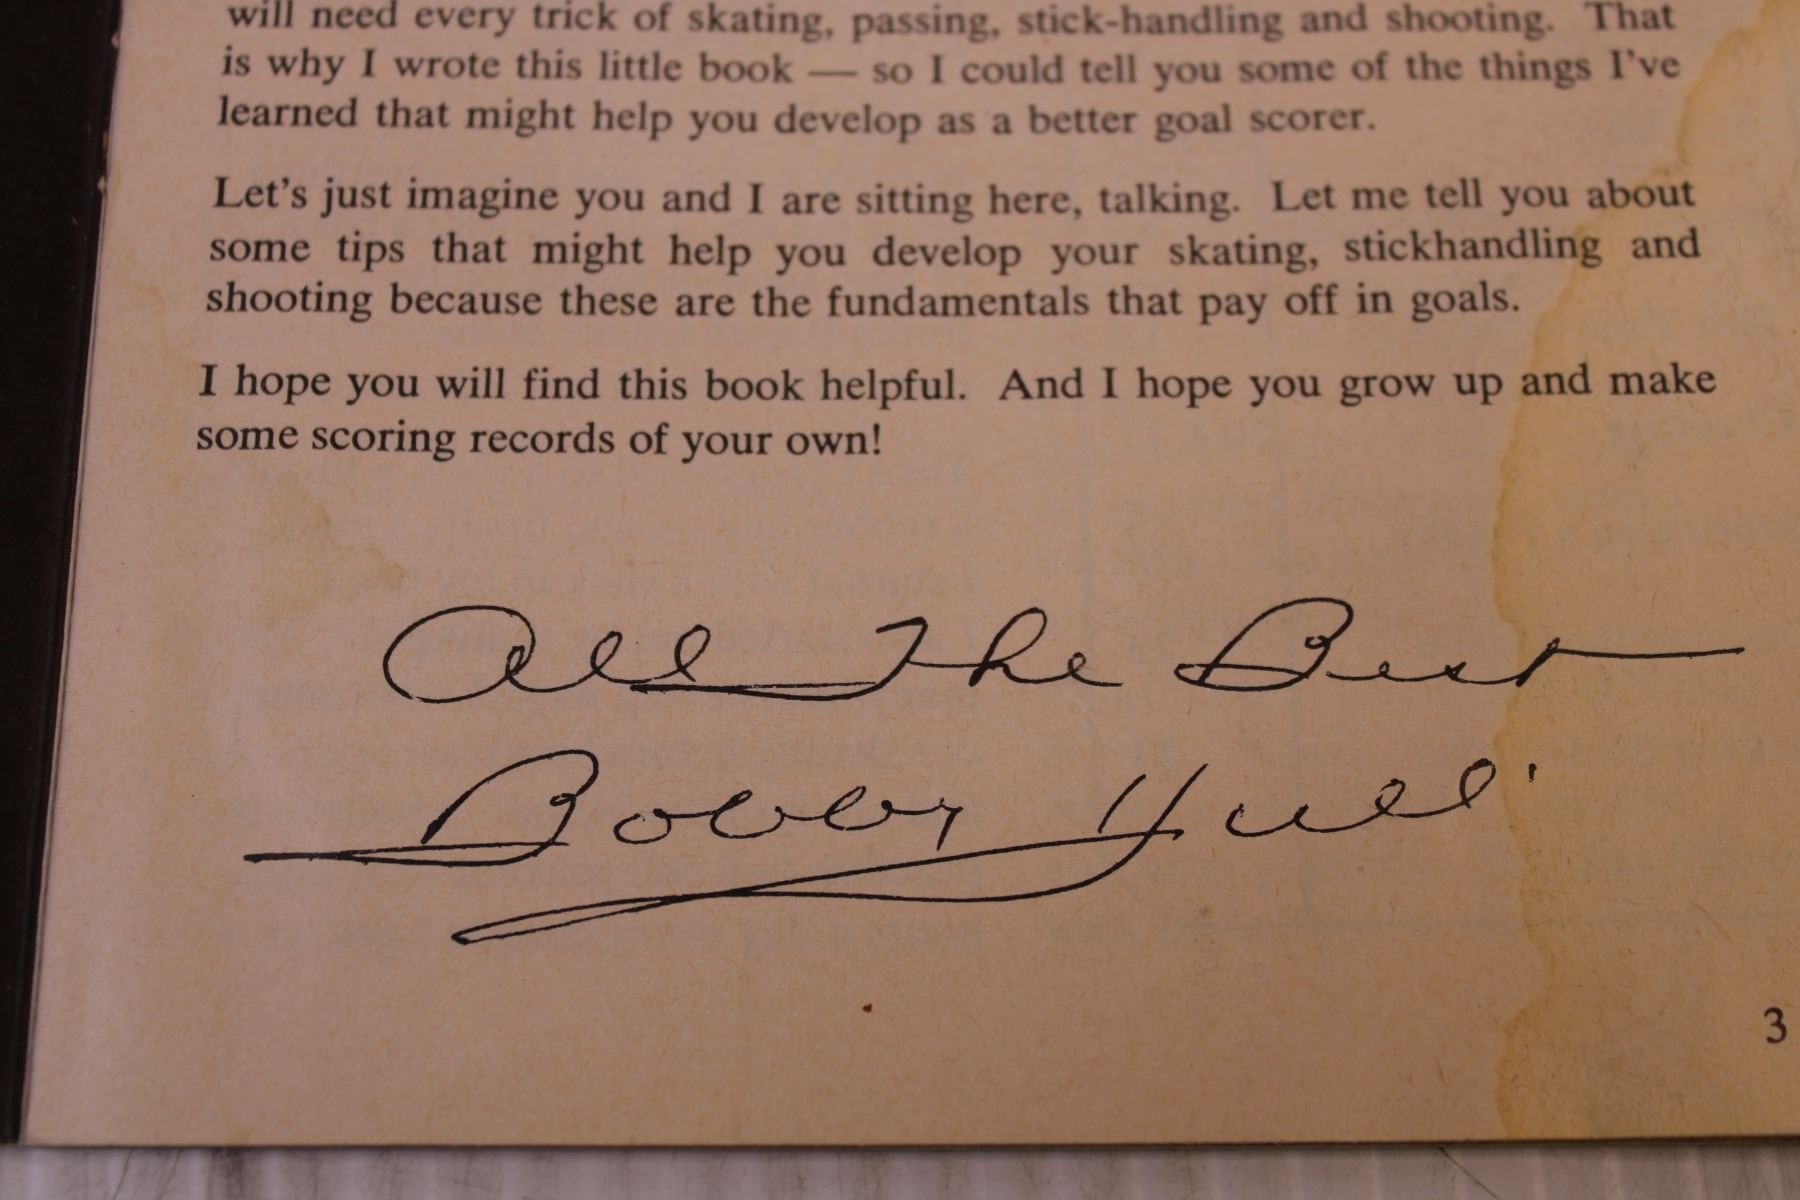 will need every trick of skating, passing, stick-handling and shooting. That
is why I wrote this little book — so I could tell you some of the things I've
learned that might help you develop as a better goal scorer.
Let's just imagine you and I are sitting here, talking. Let me tell you about
some tips that might help you develop your skating, stickhandling and
shooting because these are the fundamentals that pay off in goals.
I hope you will find this book helpful. And I hope you grow up and make
some scoring records of your own!
All The Best
Bobby Hull
3